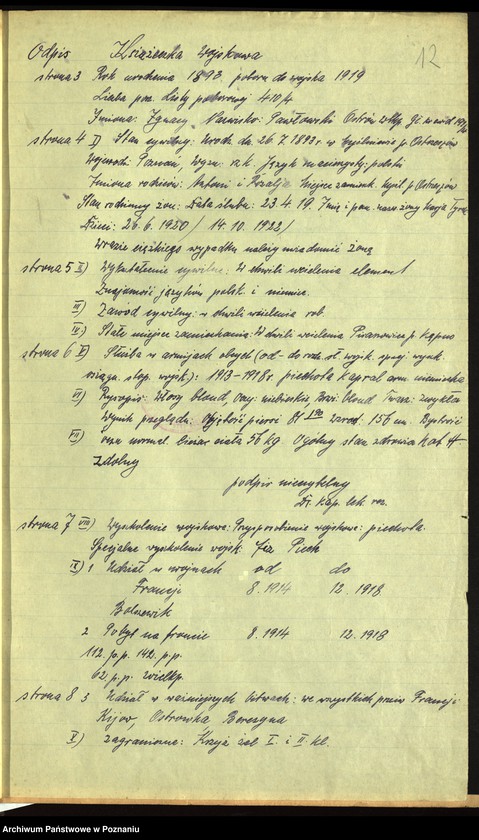 12
Odpis Książeczka Wojskowa
strona 3 Rok urodzenia 1893 poboru do wojska 1919
Liczba poz. Listy poborowej 410/4
Imiona: Ignacy Nazwisko: Pawłowski Ostrów Wlkp.
strona 4 I) Stan cywilny: Urodz. dn. 26.7.1893 r. w Myślniewie p. Ostrzeszów
Wojewódz. Poznań, Wyzn. rz. k. Język macierzysty: polski
Imiona rodziców: Antoni i Rozalja Miejsce zamieszk. Myśl. p. Ostrzeszów
Stan rodzinny żon: Data ślubu: 23.4.19. Imię i pan. nazw. żony
Dzieci: 26.6.1920/ 14.10.1922/
W razie ciężkiego wypadku należy uwiadomić żonę
strona 5 II) Wykształcenie cywilne: W chwili wcielenia element
Znajomość języków polsk. i niemiec.
III) Zawód cywilny: w chwili wcielenia rob.
IV) Stałe miejsce zamieszkania: W chwili wcielenia p. Kępno
strona 6 V) Służba w armjach obcych (od - do rodz. st. wojsk.
osiągn. stop. wojsk.): 1913-1918 r. piechota kapral arm. niemiecka
VI) Rysopis: Włosy blond Oczy: niebieskie Brwi: blond Twarz: zwykła
Wynik przeglądu: Objętość piersi 81 wzrost: 156 cm. Bystrość
VII) oczu normal. Ciężar ciała 56 kg. Ogólny stan zdrowia kat. A
Zdolny
podpis nieczytelny
Dr. Kap. lek. rez.
strona 7 VIII) Wyszkolenie wojskowe: Przysposobienie wojskowe: piechota.
Specjalne wyszkolenie wojsk:
IX) 1 Udział w wojnach od do
Francji 8.1914 12.1918
Bolszewik
2 Pobyt na froncie 8.1914 12.1918
112. p.p. 142. p.p.
62. p.p. wielkp.
strona 8 3 Udział w ważniejszych bitwach: we wszystkich przeciw Francji
Kijów, Ostrówka Berezyna
X) zagraniczne: Krzyż żel. I. i II. kl.
Archiwum Państwowe w Poznaniu